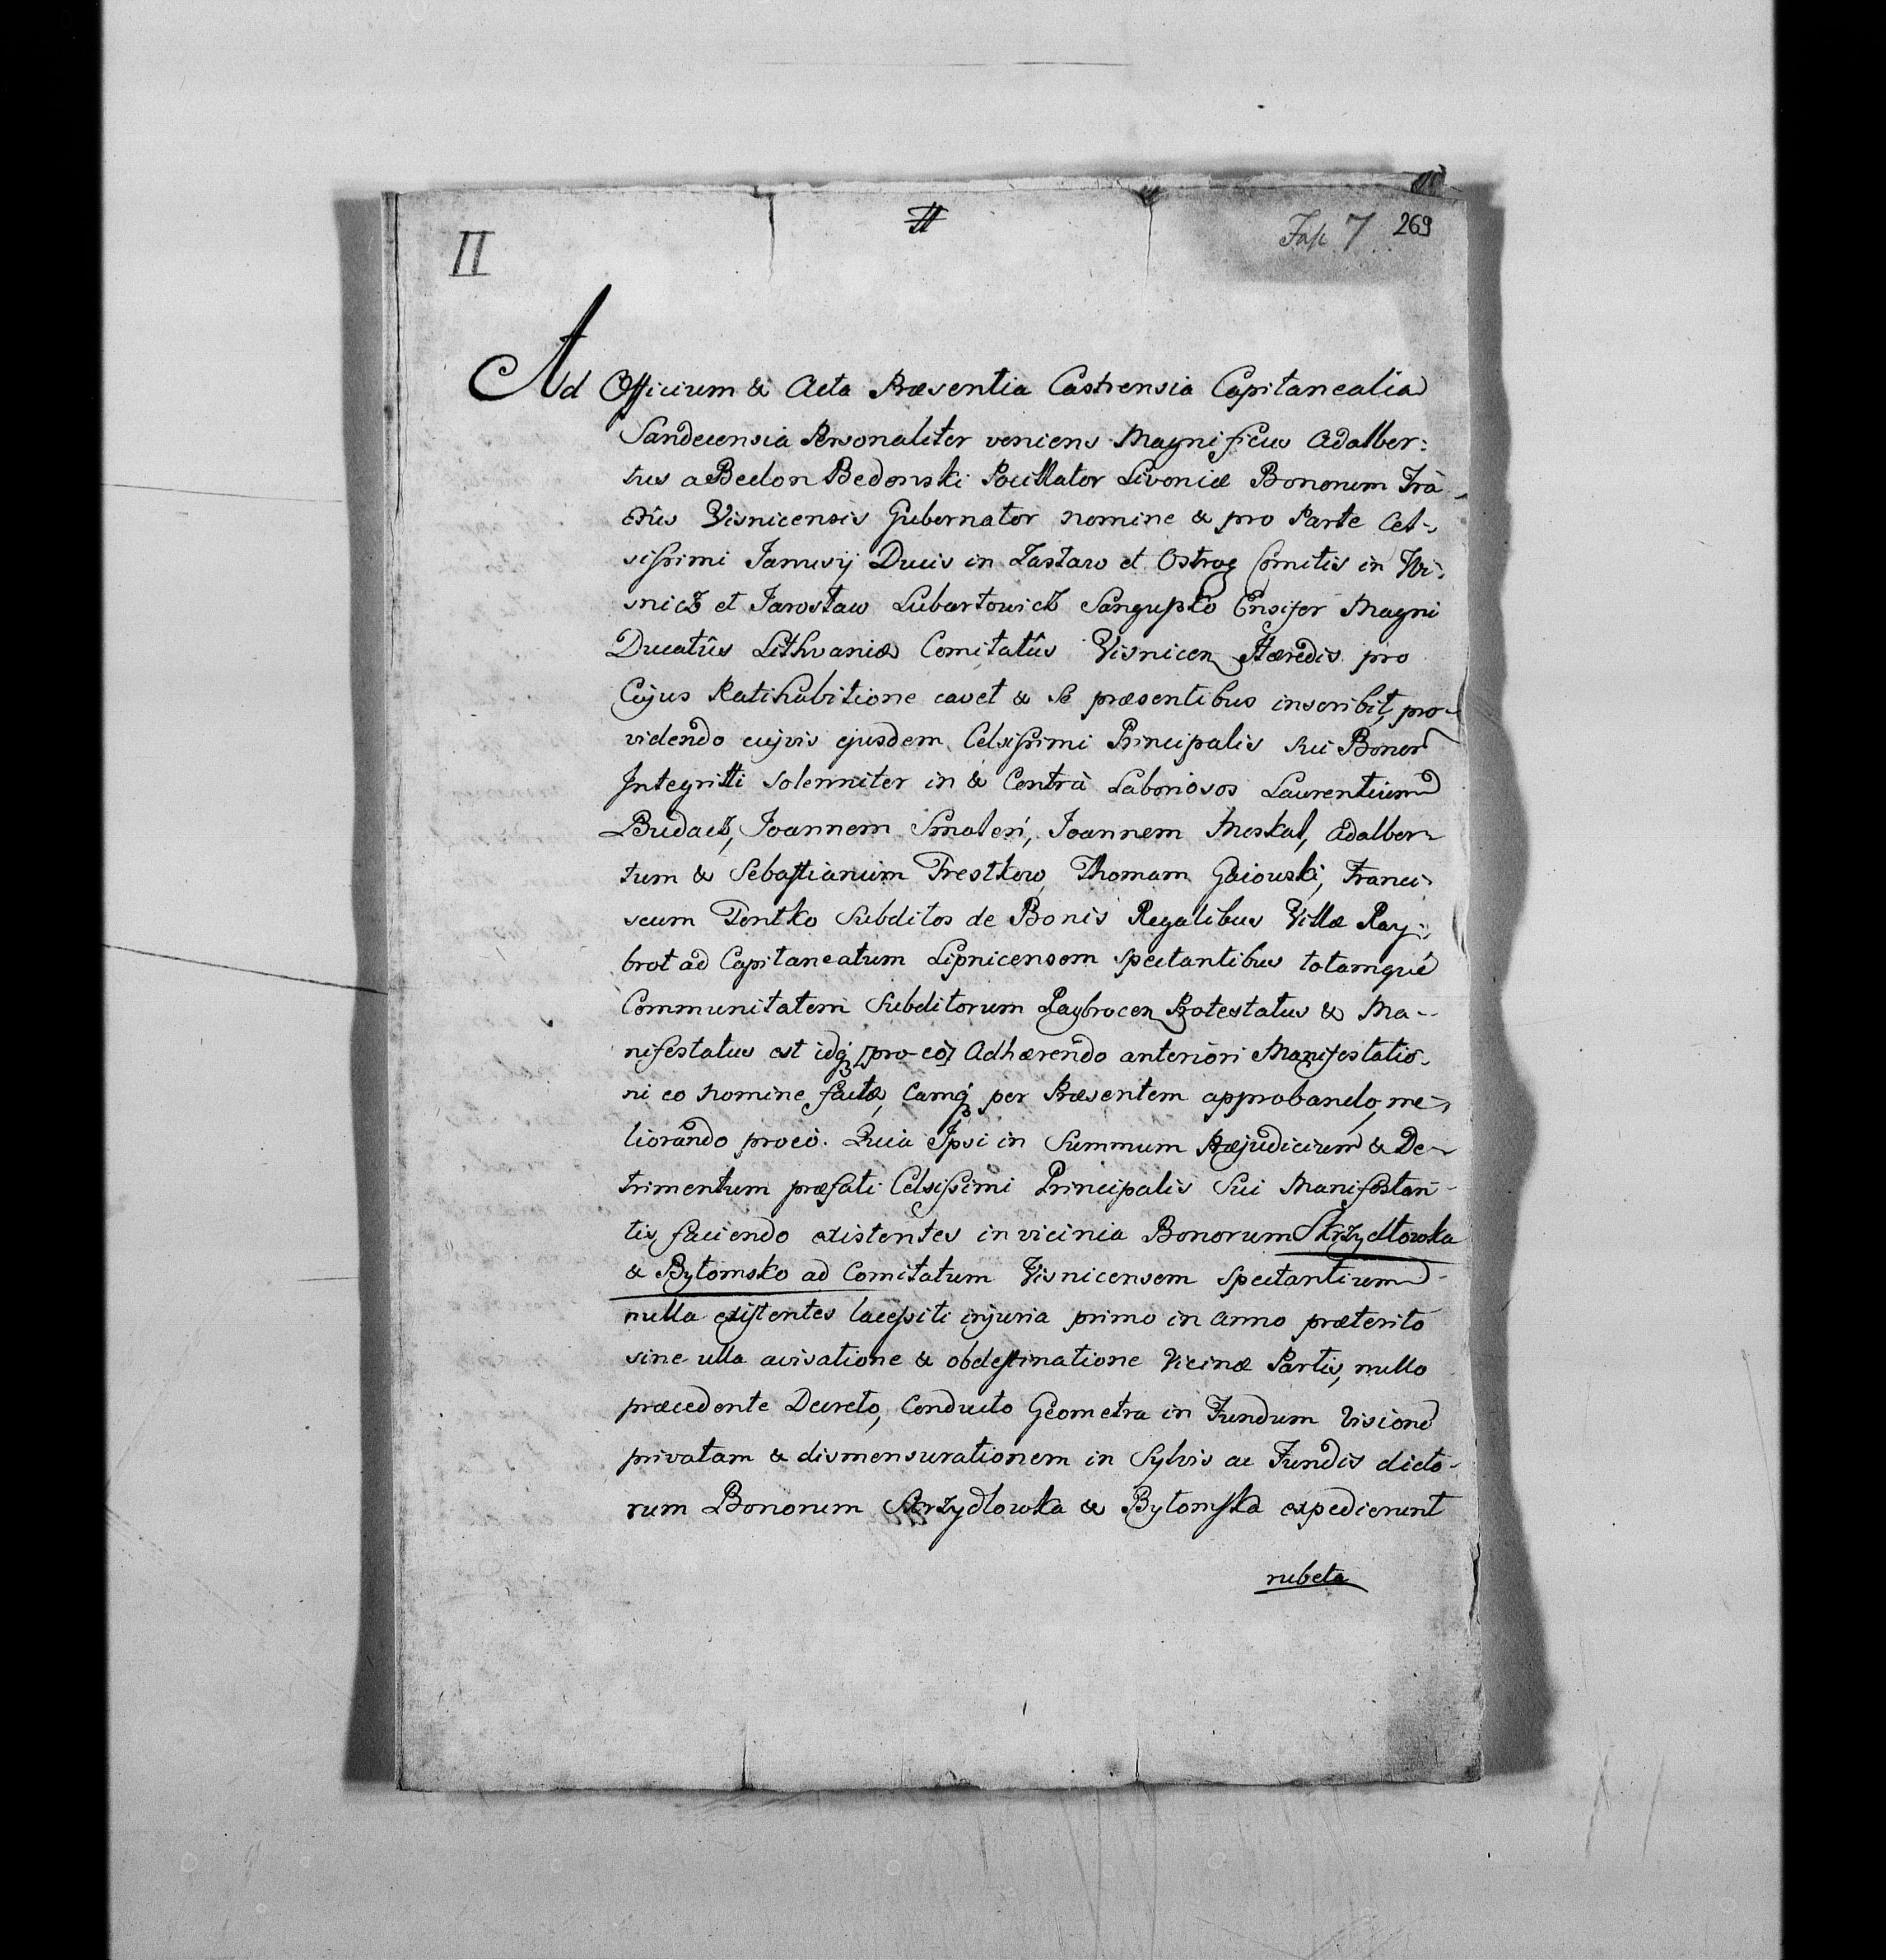 II
II
Fasc 7 269
Ad Officium & Acta Præsentia Castrensia Capitanealia
Sandecensia Personaliter veniens Magnificus Adalber:
tus a Bedon Bedonski Pocillator Livoniæ Bonorum Trā
ctûs Visnicensis Gubernator nomine & pro Parte Cel-
sissimi Janusij Ducis in Zasław et Ostrog Comitis in Wi-
snicz et Jarosław Lubartowicz Sanguszko Ensifer Magni
Ducatûs Lithvaniæ Comitatûs Visnicen Hæredis pro
Cujus Ratihabitione cavet & se præsentibus inscribit, pro-
videndo cujvis ejusdem Celsissimi Principalis Sui Bonor
Integritti Solenniter in & Contrà Laboriosos Laurentium
Budacz, Joannem Smoleń, Joannem Moskal, Adalber-
tum & Sebastianum Trestkow, Thomam Gaiowski, Franci-
scum Pontko Subditos de Bonis Regalibus Villæ Ray-
brot ad Capitaneatum Lipnicensem spectantibus totamqué
Communitatem Subditorum Raybrocen Protestatus & Ma-
nifestatus est idq pro-eò Adhærendo anteriori Manifestatio-
ni eo nomine factæ, Eamq per Præsentem approbando, me-
liorando proeò. Quia Ipsi in Summum Præjudicium & De-
trimentum præfati Celsissimi Principalis Sui Manifestan-
tis, faciendo existentes in vicinia Bonorum Skrzydłowka
& Bytomsko ad Comitatum Visnicensem Spectantium
nulla existentes lacessiti injuria primo in anno præterito
sine ulla avisatione & obdestinatione Vicinæ Partis, nullo
præcedente Decreto, Conducto Geometra in Fundum Visionē
privatam & dismensurationem in Sylvis ac Fundis dicto-
rum Bonorum Skrzydłowka & Bytomska expedierunt
rubeta